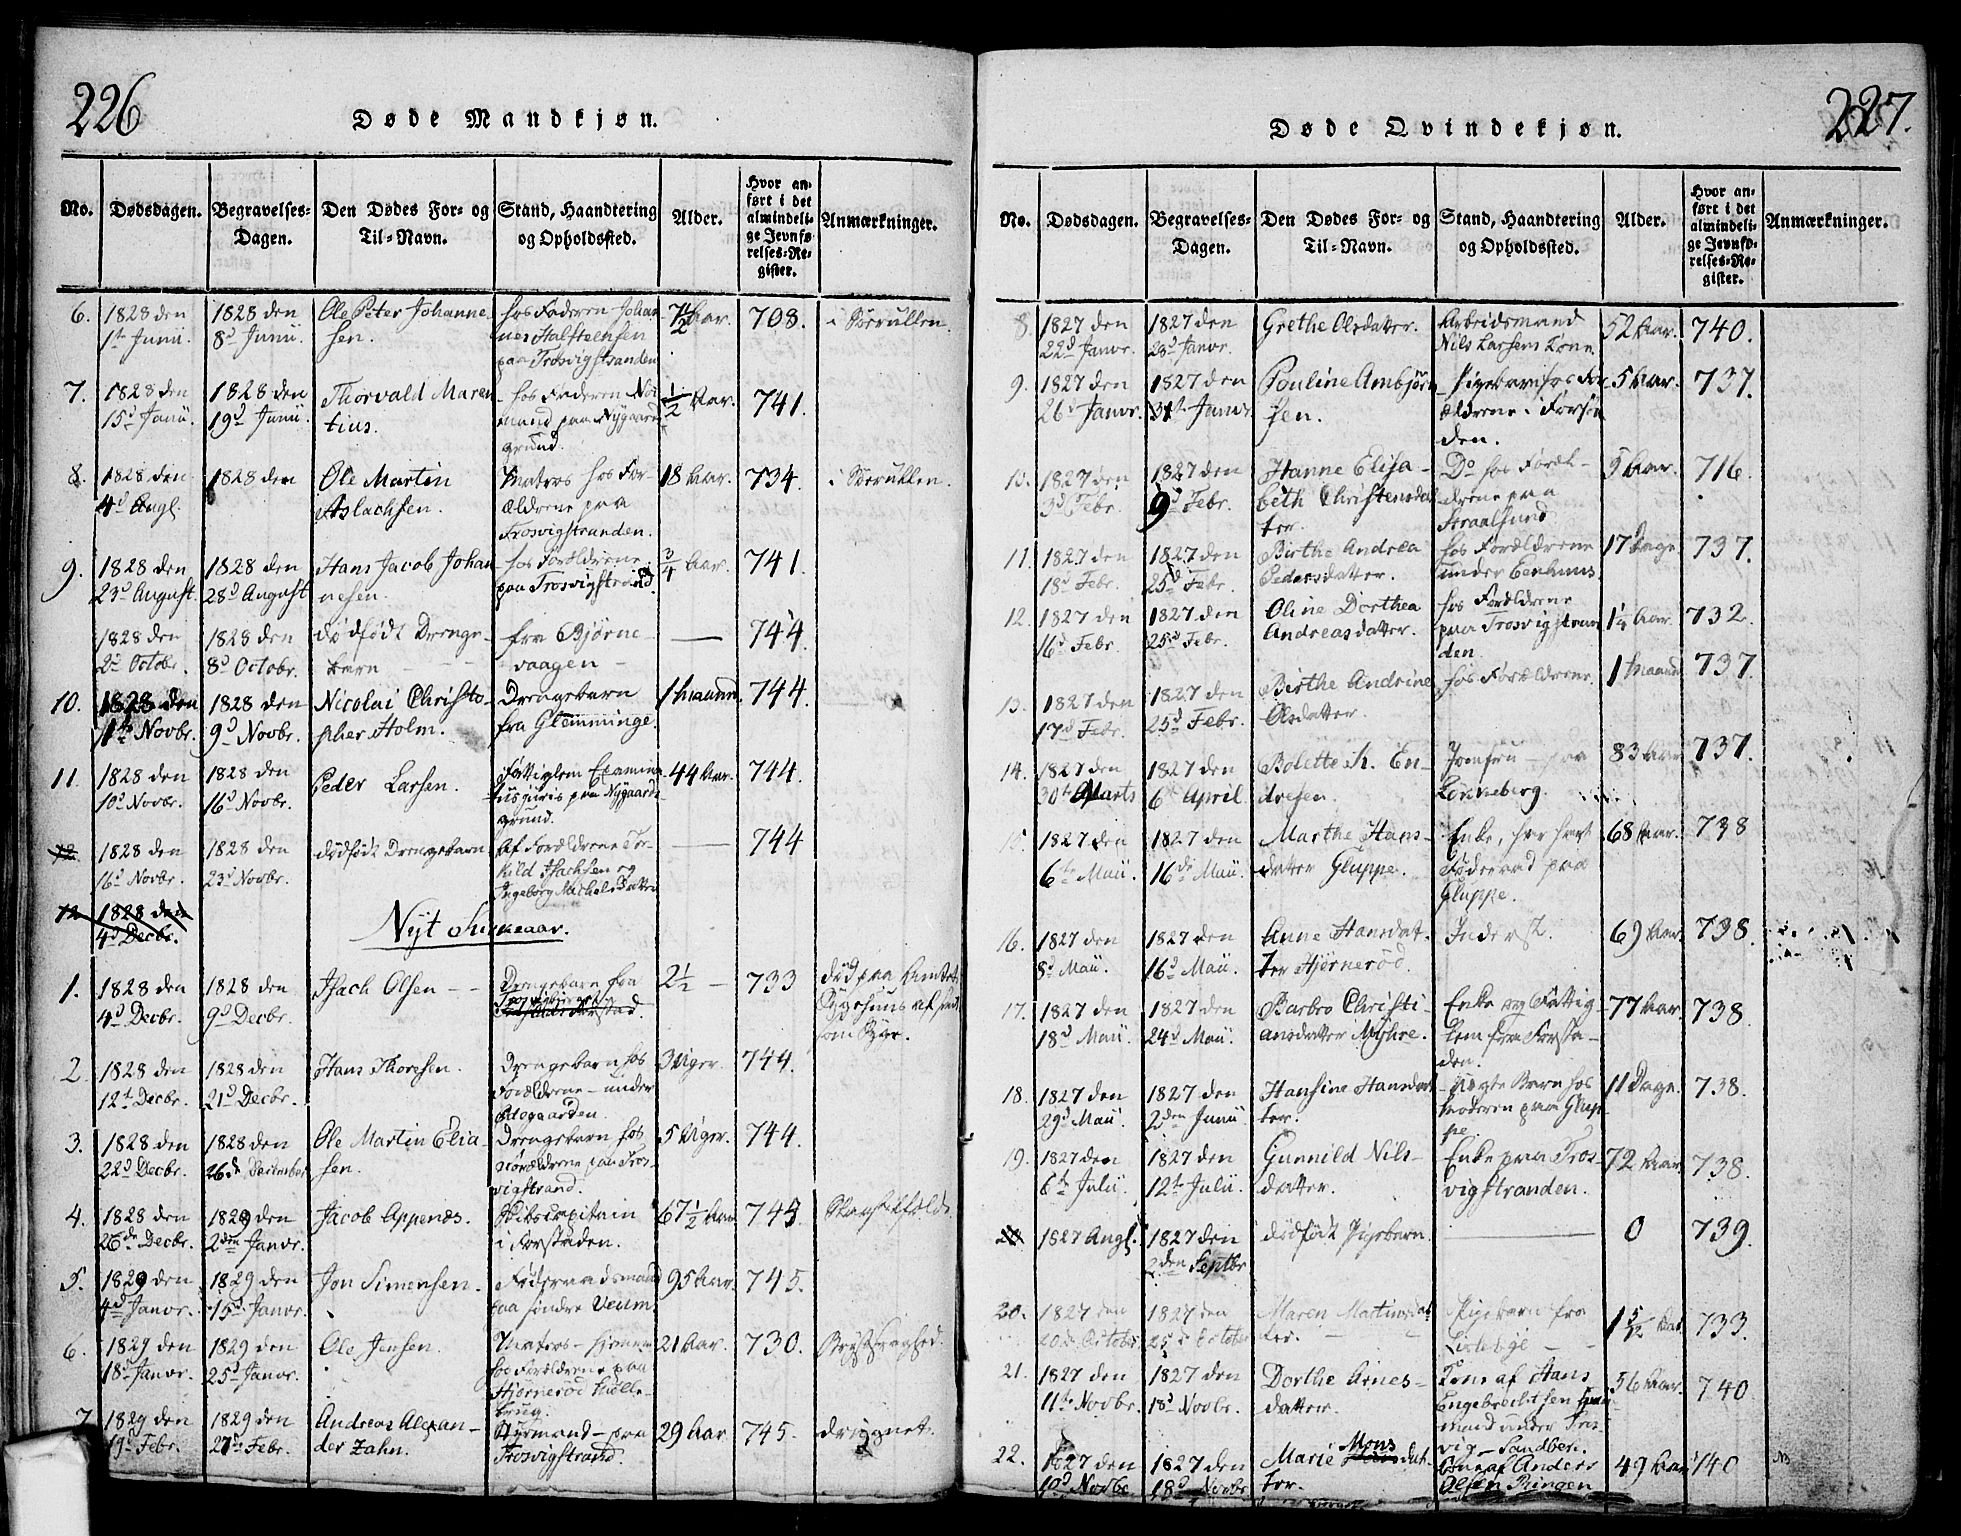 226
Døde Mandkjøn.
No. Dødsdagen. Begravelses-Dagen. Den Dødes For- og Til-Navn. Stand, Haandtering og Opholdssted. Alder. Hvor anført i det almindelige Jevnførelses-Register. Anmærkninger.
6. 1828 den 1te Junii. 1828 den 8d Junii. Ole Peter Johannesen. hos Faderen Johannes Halfteensen paa Trosvigstranden 7 1/2 Aar. 708.
7. 1828 den 15d Junii. 1828 den 19d Junii. Thorvald Marentius. hos Faderen paa Nygaardsgrund. 1/2 Aar. 741.
8. 1828 den 4d Augl. 1828 den Ole Martin Aslachsen. Matros hos Forældrene paa Trosvigstranden. 18 Aar. 734.
9. 1828 den 23d August. 1828 den 28d August Hans Jacob Johannesen. hos Forældrene paa Trosvigstrand. 3/4 Aar. 741.
1828 den 2d Octobr. 1828 den 8d Octobr. dødfødt Drengebarn fra Bjørnevaagen — 744.
10. 1828 den 1te Novbr. 1828 den 9d Novbr. Nicolai Christopher Holm. Drengebarn fra Glemminge. 1 Maaned. 744.
11. 1828 den 10d Novbr. 1828 den 16d Novbr. Peder Larsen. Fattiglem Examinatus juris paa Nygaardsgrund. 44 Aar. 744.
12 1828 den 16d Novbr. 1828 den 23d Novbr. dødfødt Drengebarn Af Forældrene Torkild Isachsen og Ingeborg Michelsdatter — 744
12 1828 den 4d Decbr.
Nyt Kirkeaar.
1. 1828 den 4d Decbr. 1828 den 9d Decbr. Isach Olsen Drengebarn fra 2 1/2 733 død paa Amtets Sygehuus
2. 1828 den 12te Decbr. 1828 den 21d Decbr. Hans Thoresen. Drengebarn hos Forældrene under 3 Uger. 744.
3. 1828 den 22d Decbr. 1828 den 26de December Ole Martin Eliasen. Drengebarn hos Forældrene paa Trosvigstrand. 5 Uger. 744.
4. 1828 den 26de Decbr. 1829 den 2den Janvr. Jacob Appenæs. Skibscapitain i Forstaden. 67 1/2 Aar 745.
5. 1829 den 4d Janvr. 1829 den 15d Janvr. Jon Simensen. Føderaadsmand paa søndre Veum. 95 Aar. 745.
6. 1829 den 18d Janvr. 1829 den 25d Janvr. Ole Jensen. Matros hjemme hos Forældrene paa Hjørnerød Møllebrug. 21 Aar. 730. Brystsyghed.
7 1829 den 19d Febr. 1829 den 27d Febr. Andreas Alexander Zahn. Styrmand paa Trosvigstrand. 29 Aar 745. druknet.
227.
Døde Qvindekjøn.
No. Dødsdagen. Begravelses-Dagen. Den Dødes For- og Til-Navn. Stand, Haandtering og Opholdssted. Alder. Hvor anført i det almindelige Jevnførelses-Register. Anmærkninger.
8. 1827 den 22d Janvr. 1827 den 28d Janvr. Grethe Olsdatter. Arbeidsmand Nils Larsens Kone. 52 Aar. 740.
9. 1827 den 26d Janvr. 1827 den 31te Janvr. Pouline Ambjørnsen. Pigebarn hos Forældrene i Forstaden. 5 Aar. 737.
10. 1827 den 3d Febr. 1827 den 9d Febr. Hanne Elisabeth Christensdatter. Do hos Forældrene paa Straalsund 5 Aar. 716.
11. 1827 den 18d Febr. 1827 den 25d Febr. Birthe Andrea Pedersdatter. hos Forældrene under Evenhuus. 17 Dage. 737.
12. 1827 den 16d Febr. 1827 den 25d Febr. Oline Dorthea Andreasdatter. hos Forældrene paa Trosvigstranden 1 1/4 Aar. 732.
13. 1827 den 17d Febr. 1827 den 25d Febr. Birthe Andrine Olsdatter. hos Forældrene. 1 Maaned 737.
14. 1827 den 30te Marts 1827 den 6d April Bolette K. Endresen. Jomfru paa Lønneberg. 83 Aar 737.
15. 1827 den 6te Maii. 1827 den 16de Maii. Marthe Hansdatter Gluppe. Enke, har havt Føderaad paa Gluppe. 68 Aar. 738
16. 1827 den 8d Maii. 1827 den 16d Maii. Anne Hansdatter Hjørnerød. Inderst. 69 Aar. 738.
17. 1827 den 18d Maii. 1827 den 24d Maii. Barbro Christiansdatter Myhre. Enke og Fattiglem fra Forstaden. 77 Aar. 738.
18. 1827 den 29d Maii 1827 den 2den Junii Hansine Hansdatter. Uægte Barn hos Moderen paa Gluppe. 11 Dage. 738.
19. 1827 den 6te Julii. 1827 den 12te Julii. Gunnild Nilsdatter. Enke paa Trosvigstranden. 72 Aar. 738.
20 1827 Augl. 1827 den 2den Septbr dødfødt Pigebarn. — 0 739.
20. 1827 den 20de October 1827 den 25d October Maren Martinsdatter. Pigebarn fra Lisleby 1 5/12 Aar. 733.
21. 1827 den 11te Novbr. 1827 den 18d Novbr. Dorthe Arnesdatter. Kone af Hans Engebrechtsen Huusmand under Trosvig — Sandberg. 56 Aar. 740
22. 1827 den 10d Novbr 1827 den 18d Novbr Marie Monsdatter. Kone af Anders Olsen Ringen 49 Aar 740